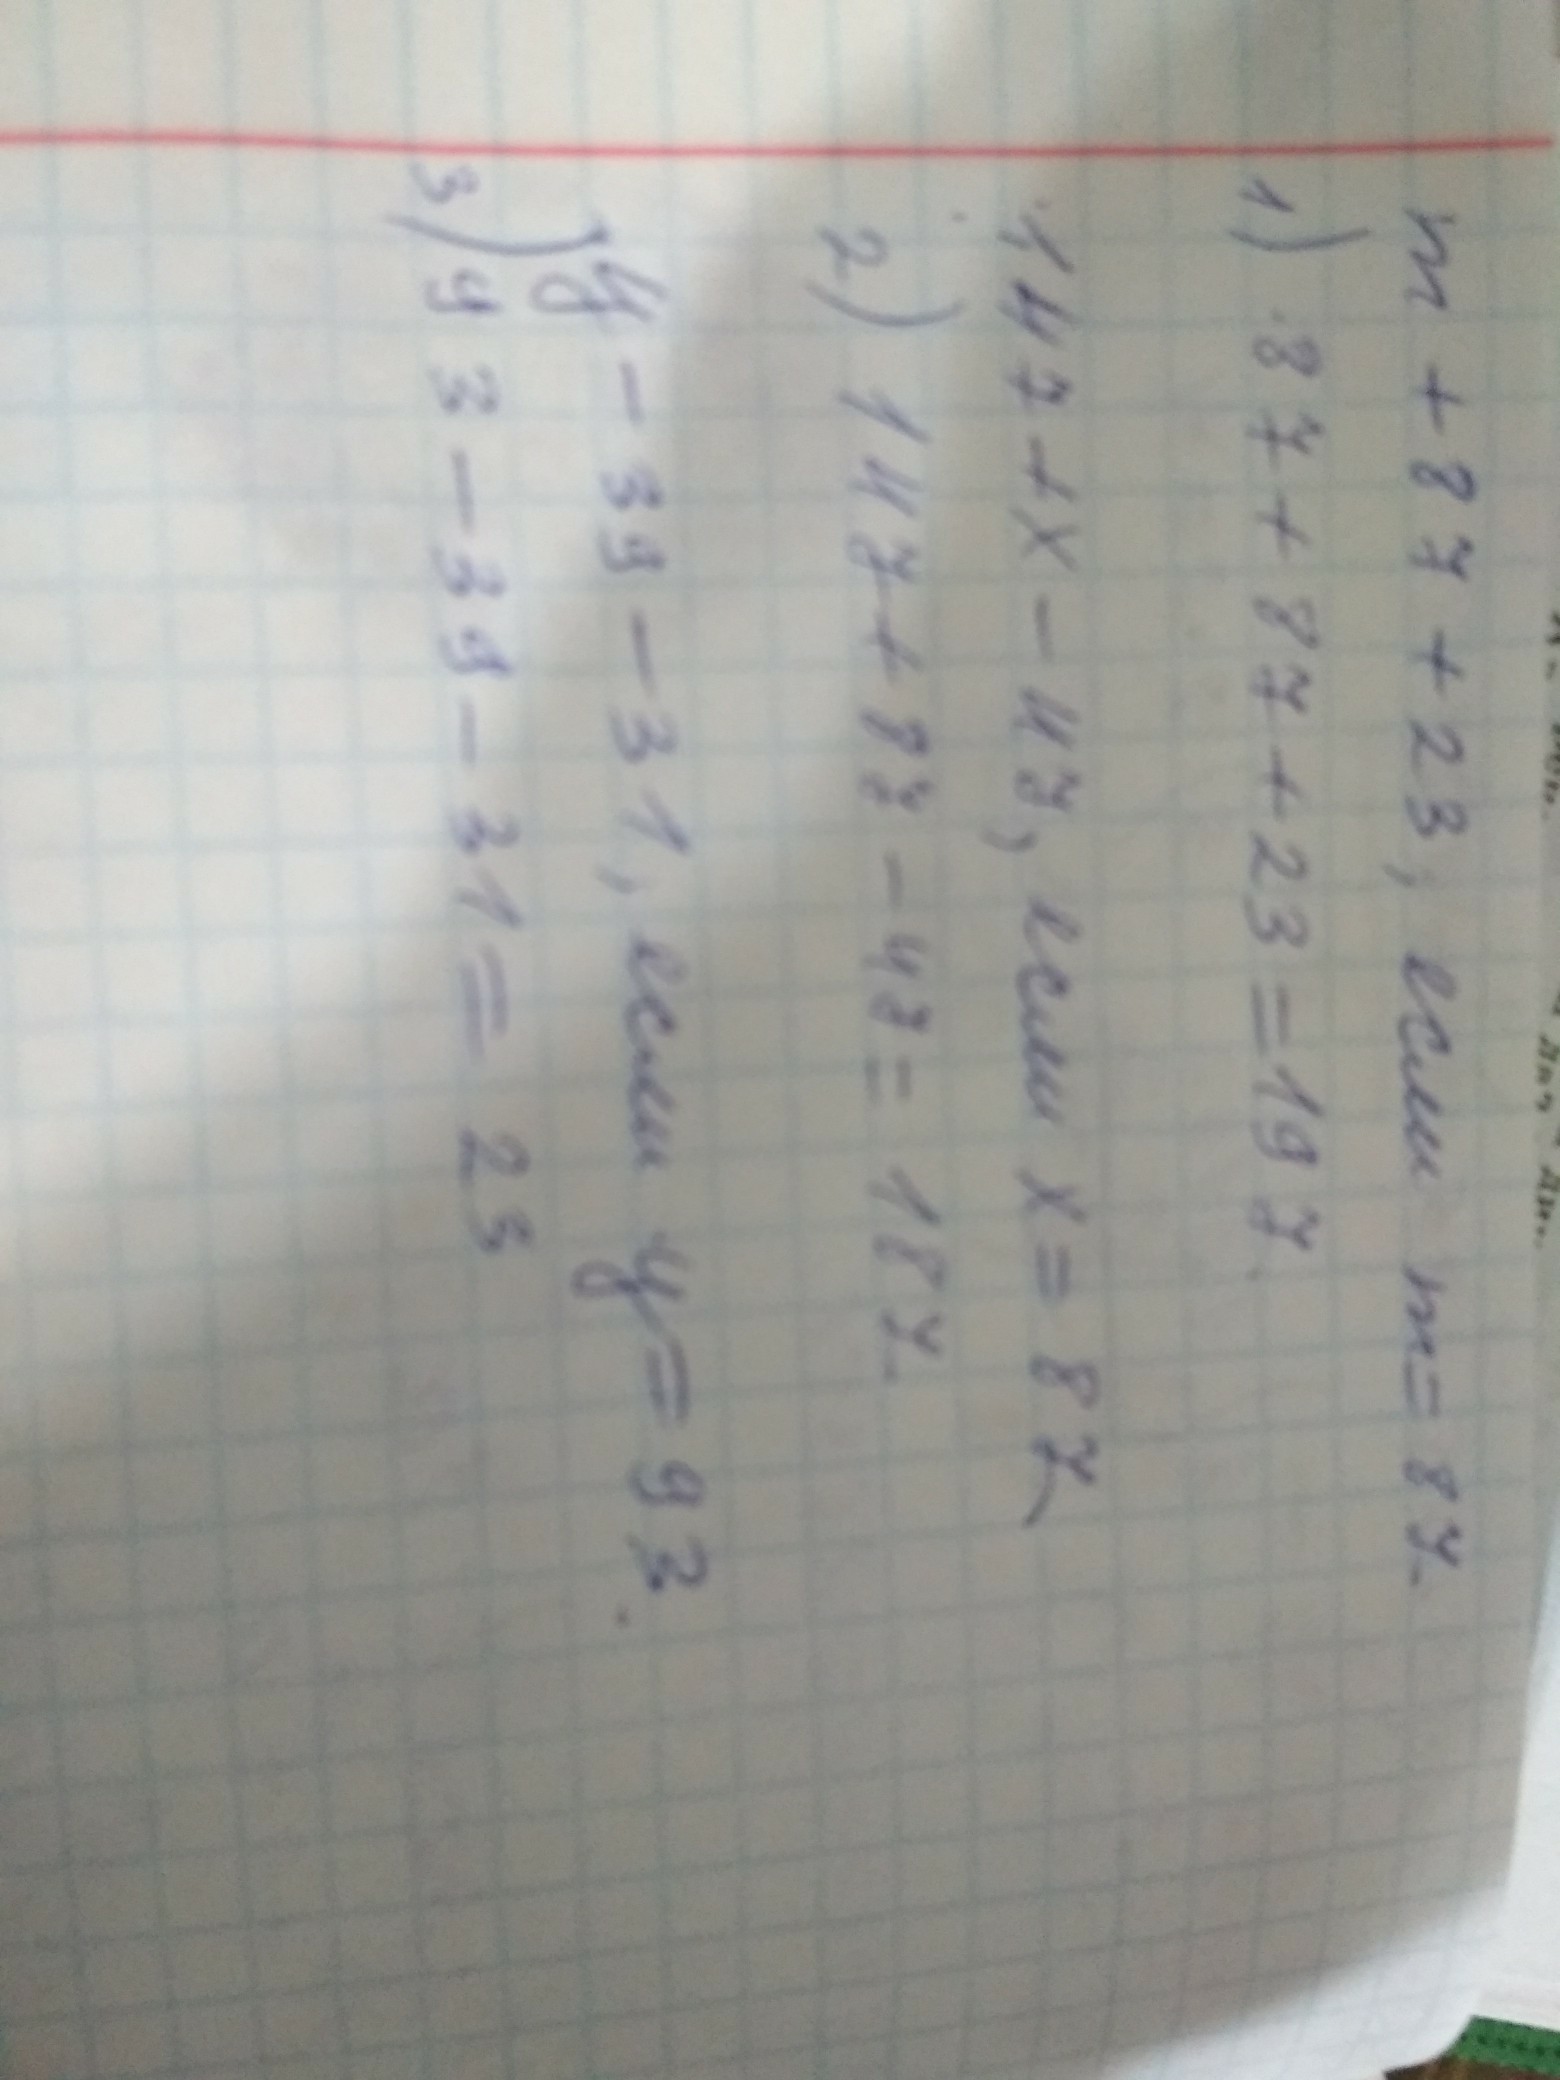 m + 87 + 23, если m = 87.
1) 87 + 87 + 23 = 197
147 + x - 47, если x = 87
2) 147 + 87 - 48 = 187.
y - 39 - 31, если y = 93
3) 93 - 39 - 31 = 23